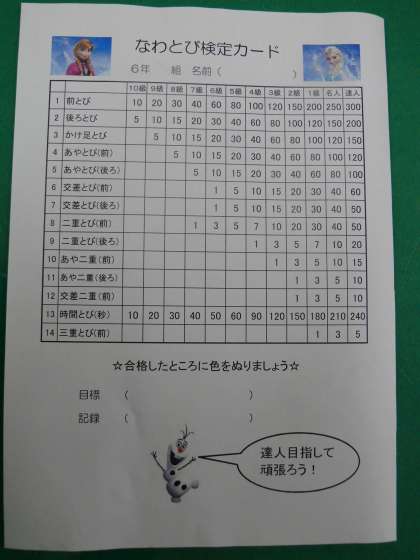 なわとび検定カード
6年 組 名前( )
10級 9級 8級 7級 6級 5級 4級 3級 2級 1級 名人 達人
1 前とび 10 20 30 40 60 80 100 120 150 200 250 300
2 後ろとび 5 10 15 20 30 40 50 60 80 100 150 200
3 かけ足とび 5 10 15 20 30 40 50 60 80 100 120
4 あやとび(前) 5 10 15 20 30 40 60 80 100 120
5 あやとび(後ろ) 5 10 15 20 30 40 60 80 100
6 交差とび(前) 1 5 10 15 20 30 40 60
7 交差とび(後ろ) 1 5 10 15 20 30 40 50
8 二重とび(前) 1 3 5 7 10 20 30 40 50
9 二重とび(後ろ) 1 3 5 7 10 20
10 あや二重(前) 1 3 5 10 15
11 あや二重(後ろ) 1 3 5 10
12 交差二重(前) 1 3 5 10
13 時間とび(秒) 10 20 30 40 50 60 90 120 150 180 210 240
14 三重とび(前) 1 3 5
☆合格したところに色をぬりましょう☆
目標 ( )
記録 ( )
達人目指して
頑張ろう！